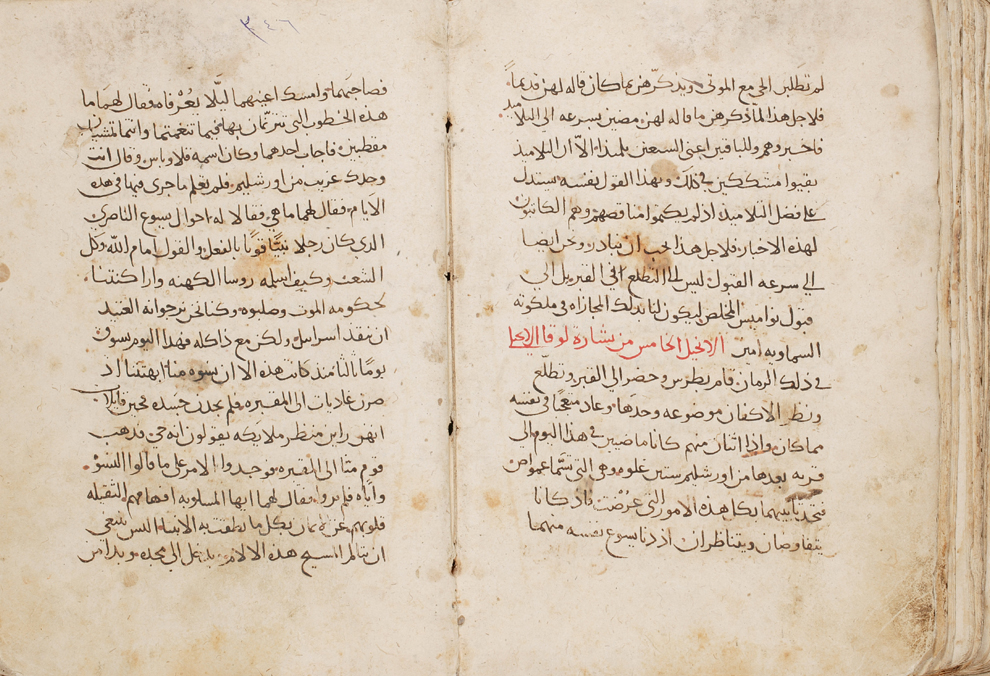 لم تطلبن الحي مع الموتى ويذكرهن بما كان قاله لهن قديماً
فلاجل هذا لما ذكرهن ما قاله لهن مضين بسرعه الى التلاميذ
فاخبروهم وللباقين اعني السبعين تلميذا الا ان التلاميذ
بقيوا مشككين في ذلك وبهذا القول نفسه يستدل
على فضل التلاميذ اذ لم يكتموا مناقصهم وهم الكاتبون
لهذه الاخبار فلاجل هذا يجب ان نبادر ونحن ايضا
الى سرعه القبول ليس الى التطلع في القبر بل الى
قبول نواميس المخلص ليكون لنا بذلك المجازاه في ملكوته
السماويه امين الانجيل الخامس من بشارة لوقا الانجيلي
في ذلك الزمان قام بطرس وحضر الى القبر وتطلع
ونظر الاكفان موضوعه وحدها وعاد متعجبا في نفسه
مما كان واذا اثنان منهم كانا ماضيين في هذا اليوم الى
قريه بعدها من اورشليم ستين غلوه وهي التي تسما عمواص
فتحدثا بينهما بكل هذه الامور التي عرضت فاذ كانا
يتفاوضان ويتناظران اذ دنا يسوع نفسه منهما
٣٤٦
فصاحبهما وامسك اعينهما ليلا يعرفاه فقال لهما ما
هذه الخطوب التي تترثمان بهلجيما تنغمتها وانتما تمشيان
مقطبين فاجاب احدهما وكان اسمه قلاوباس وقال انت
وحدك غريب من اورشليم فلم تعلم ما جرى فيها في هذه
الايام فقال لهما ما هي فقالا له احوال يسوع الناصري
الذي كان رجلا نبيا قويا بالفعل والقول امام الله وكل
الشعب وكيف اسلمه روسا الكهنه واراكنتنا
لحكومه الموت وصلبوه وكنا نحن نرجوا انه العتيد
ان ينقذ اسرائيل ولكن مع ذا كله فهذا اليوم يسوق
يوما ثالثا منذ كانت هذه الا ان نسوه منا ابهتننا اذ
صرن غاديات الى المقبره فلم يجدن جسده فجين قايلات
انهن راين منظر ملايكه يقولون انه حي فذهب
قوم منا الى المقبره فوجدوا الامر على ما قالوا النسوه
واياه فلم يروه فقال لهما ايها المسلوبه افهامهم الثقيله
قلوبهم عن الايمان بكل ما نطقت به الانبيا اليس ينبغي
ان يتالم المسيح هذه الالام ويدخل الى مجده وبدا من